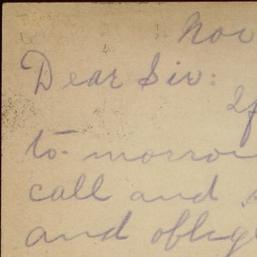 Nov
Dear Sir:
If
to-morrow
call and
and oblig